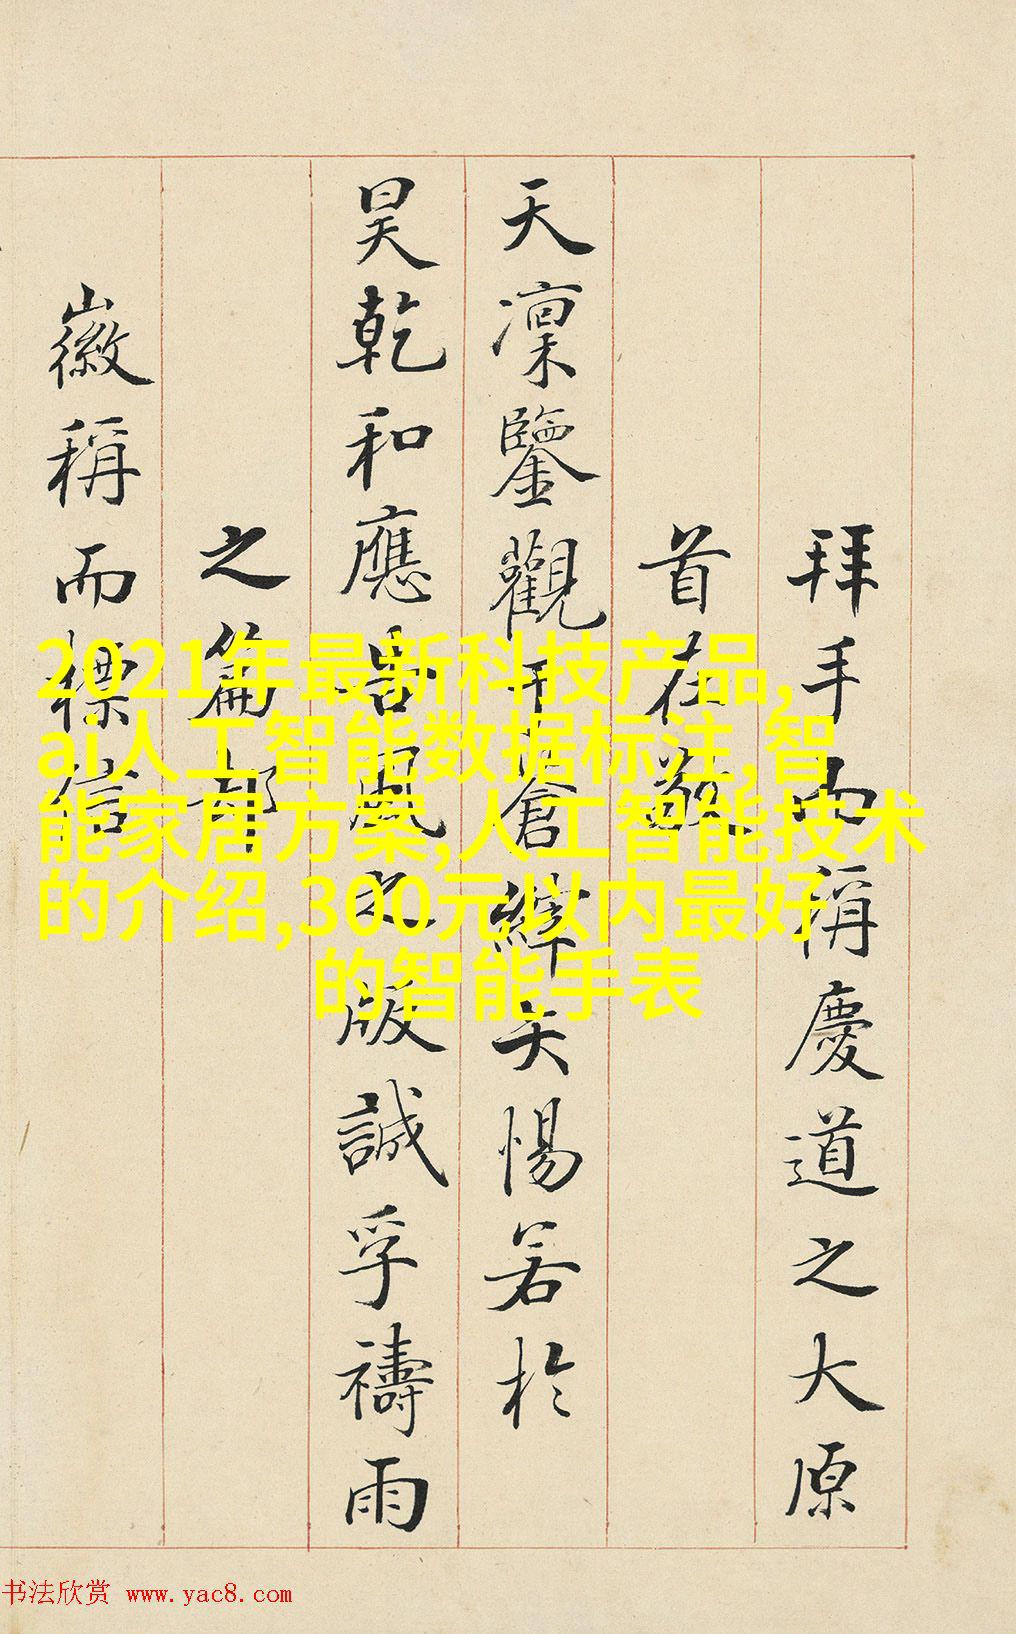 拜手稱慶道之大原
首在敬
天凜鑒觀夫惕若於
昊乾和應風之版誠孚禱雨
之篇
徽稱而標信
2021年最新科技产品,
ai人工智能数据标注,智
能家居方案,人工智能技术
的介绍,300元以内最好
的智能手表
书法欣赏 www.yac8.com